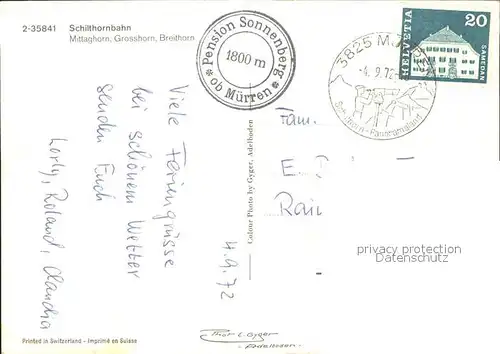 2-35841 Schilthornbahn
Mittaghorn, Grosshorn, Breithorn
* Pension Sonnenberg *
1800 m
ob Mürren
3825 MÜRREN
-4.9.72-
Schilthorn-Panoramafahrt
HELVETIA
20
SAMEDAN
Viele Feriengrüsse
bei schönem Wetter
senden Euch
Lorly, Roland, Claudia
4.9.72
Colour Photo by Gyger, Adelboden
Fam.
E
Rai
privacy protection
Datenschutz
Printed in Switzerland - Imprimé en Suisse
Phot E. Gyger
Adelboden